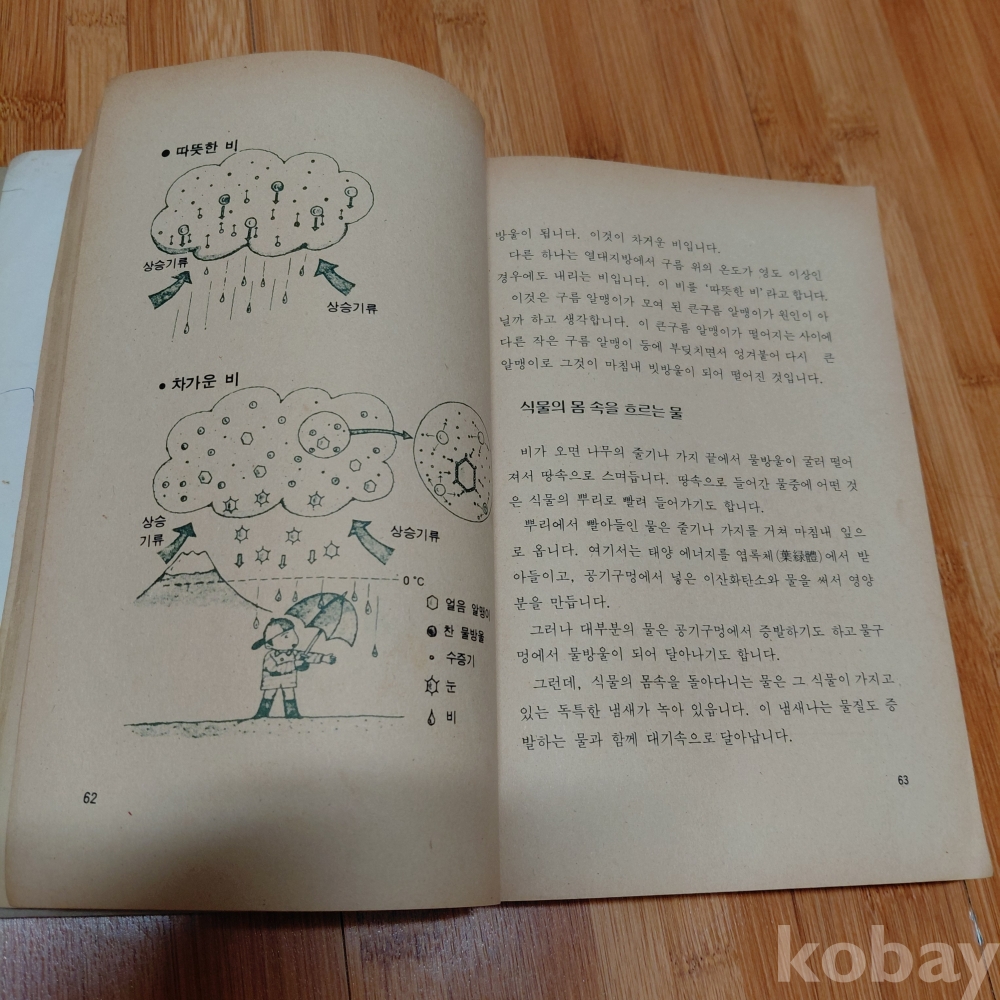 ● 따뜻한 비
상승기류
상승기류
● 차가운 비
상승
기류
상승기류
0°C
얼음 알맹이
찬 물방울
수증기
눈
비
62
방울이 됩니다. 이것이 차거운 비입니다.
다른 하나는 열대지방에서 구름 위의 온도가 영도 이상인
경우에도 내리는 비입니다. 이 비를 '따뜻한 비'라고 합니다.
이것은 구름 알맹이가 모여 된 큰구름 알맹이가 원인이 아
닐까 하고 생각합니다. 이 큰구름 알맹이가 떨어지는 사이에
다른 작은 구름 알맹이 등에 부딪치면서 엉겨붙어 다시 큰
알맹이로 그것이 마침내 빗방울이 되어 떨어진 것입니다.
식물의 몸 속을 흐르는 물
비가 오면 나무의 줄기나 가지 끝에서 물방울이 굴러 떨어
져서 땅속으로 스며듭니다. 땅속으로 들어간 물중에 어떤 것
은 식물의 뿌리로 빨려 들어가기도 합니다.
뿌리에서 빨아들인 물은 줄기나 가지를 거쳐 마침내 잎으
로 옵니다. 여기서는 태양 에너지를 엽록체(葉緑體)에서 받
아들이고, 공기구멍에서 넣은 이산화탄소와 물을 써서 영양
분을 만듭니다.
그러나 대부분의 물은 공기구멍에서 증발하기도 하고 물구
멍에서 물방울이 되어 달아나기도 합니다.
그런데, 식물의 몸속을 돌아다니는 물은 그 식물이 가지고
있는 독특한 냄새가 녹아 있읍니다. 이 냄새나는 물질도 증
발하는 물과 함께 대기속으로 달아납니다.
63
kobay